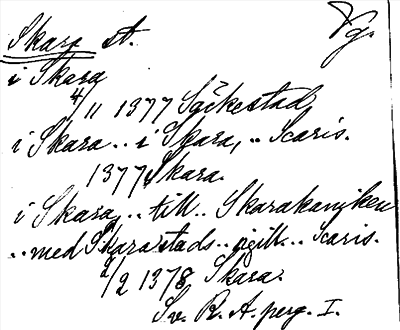 Skara st. Vg.
i Skara
4/11 1377 Säckestad
i Skara .. i Skara, .. Scaris.
1377 Skara.
i Skara, .. till .. Skarakaniken
.. med Skara stads .. sigill .. Scaris.
2/2 1378 Skara.
Sv. R. A. perg. I.